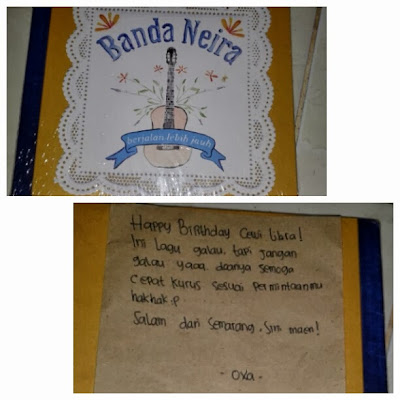 Banda Neira
berjalan lebih jauh
Happy Birthday Cewe libra!
Ini lagu galau, tapi jangan
galau yaaa. doanya semoga
cepat kurus sesuai permintaanmu
hakhak :p
Salam dari Semarang. Sini maen!
- oxa -